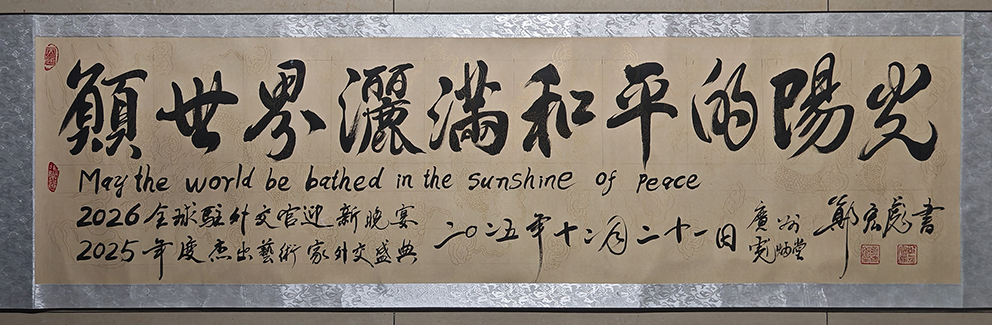 願世界灑滿和平的陽光
May the world be bathed in the sunshine of peace
2026全球駐外交官迎新晚宴
2025年度杰出藝術家外交盛典
二〇二五年十二月二十一日
廣州
寬炳堂
鄭宏彪書